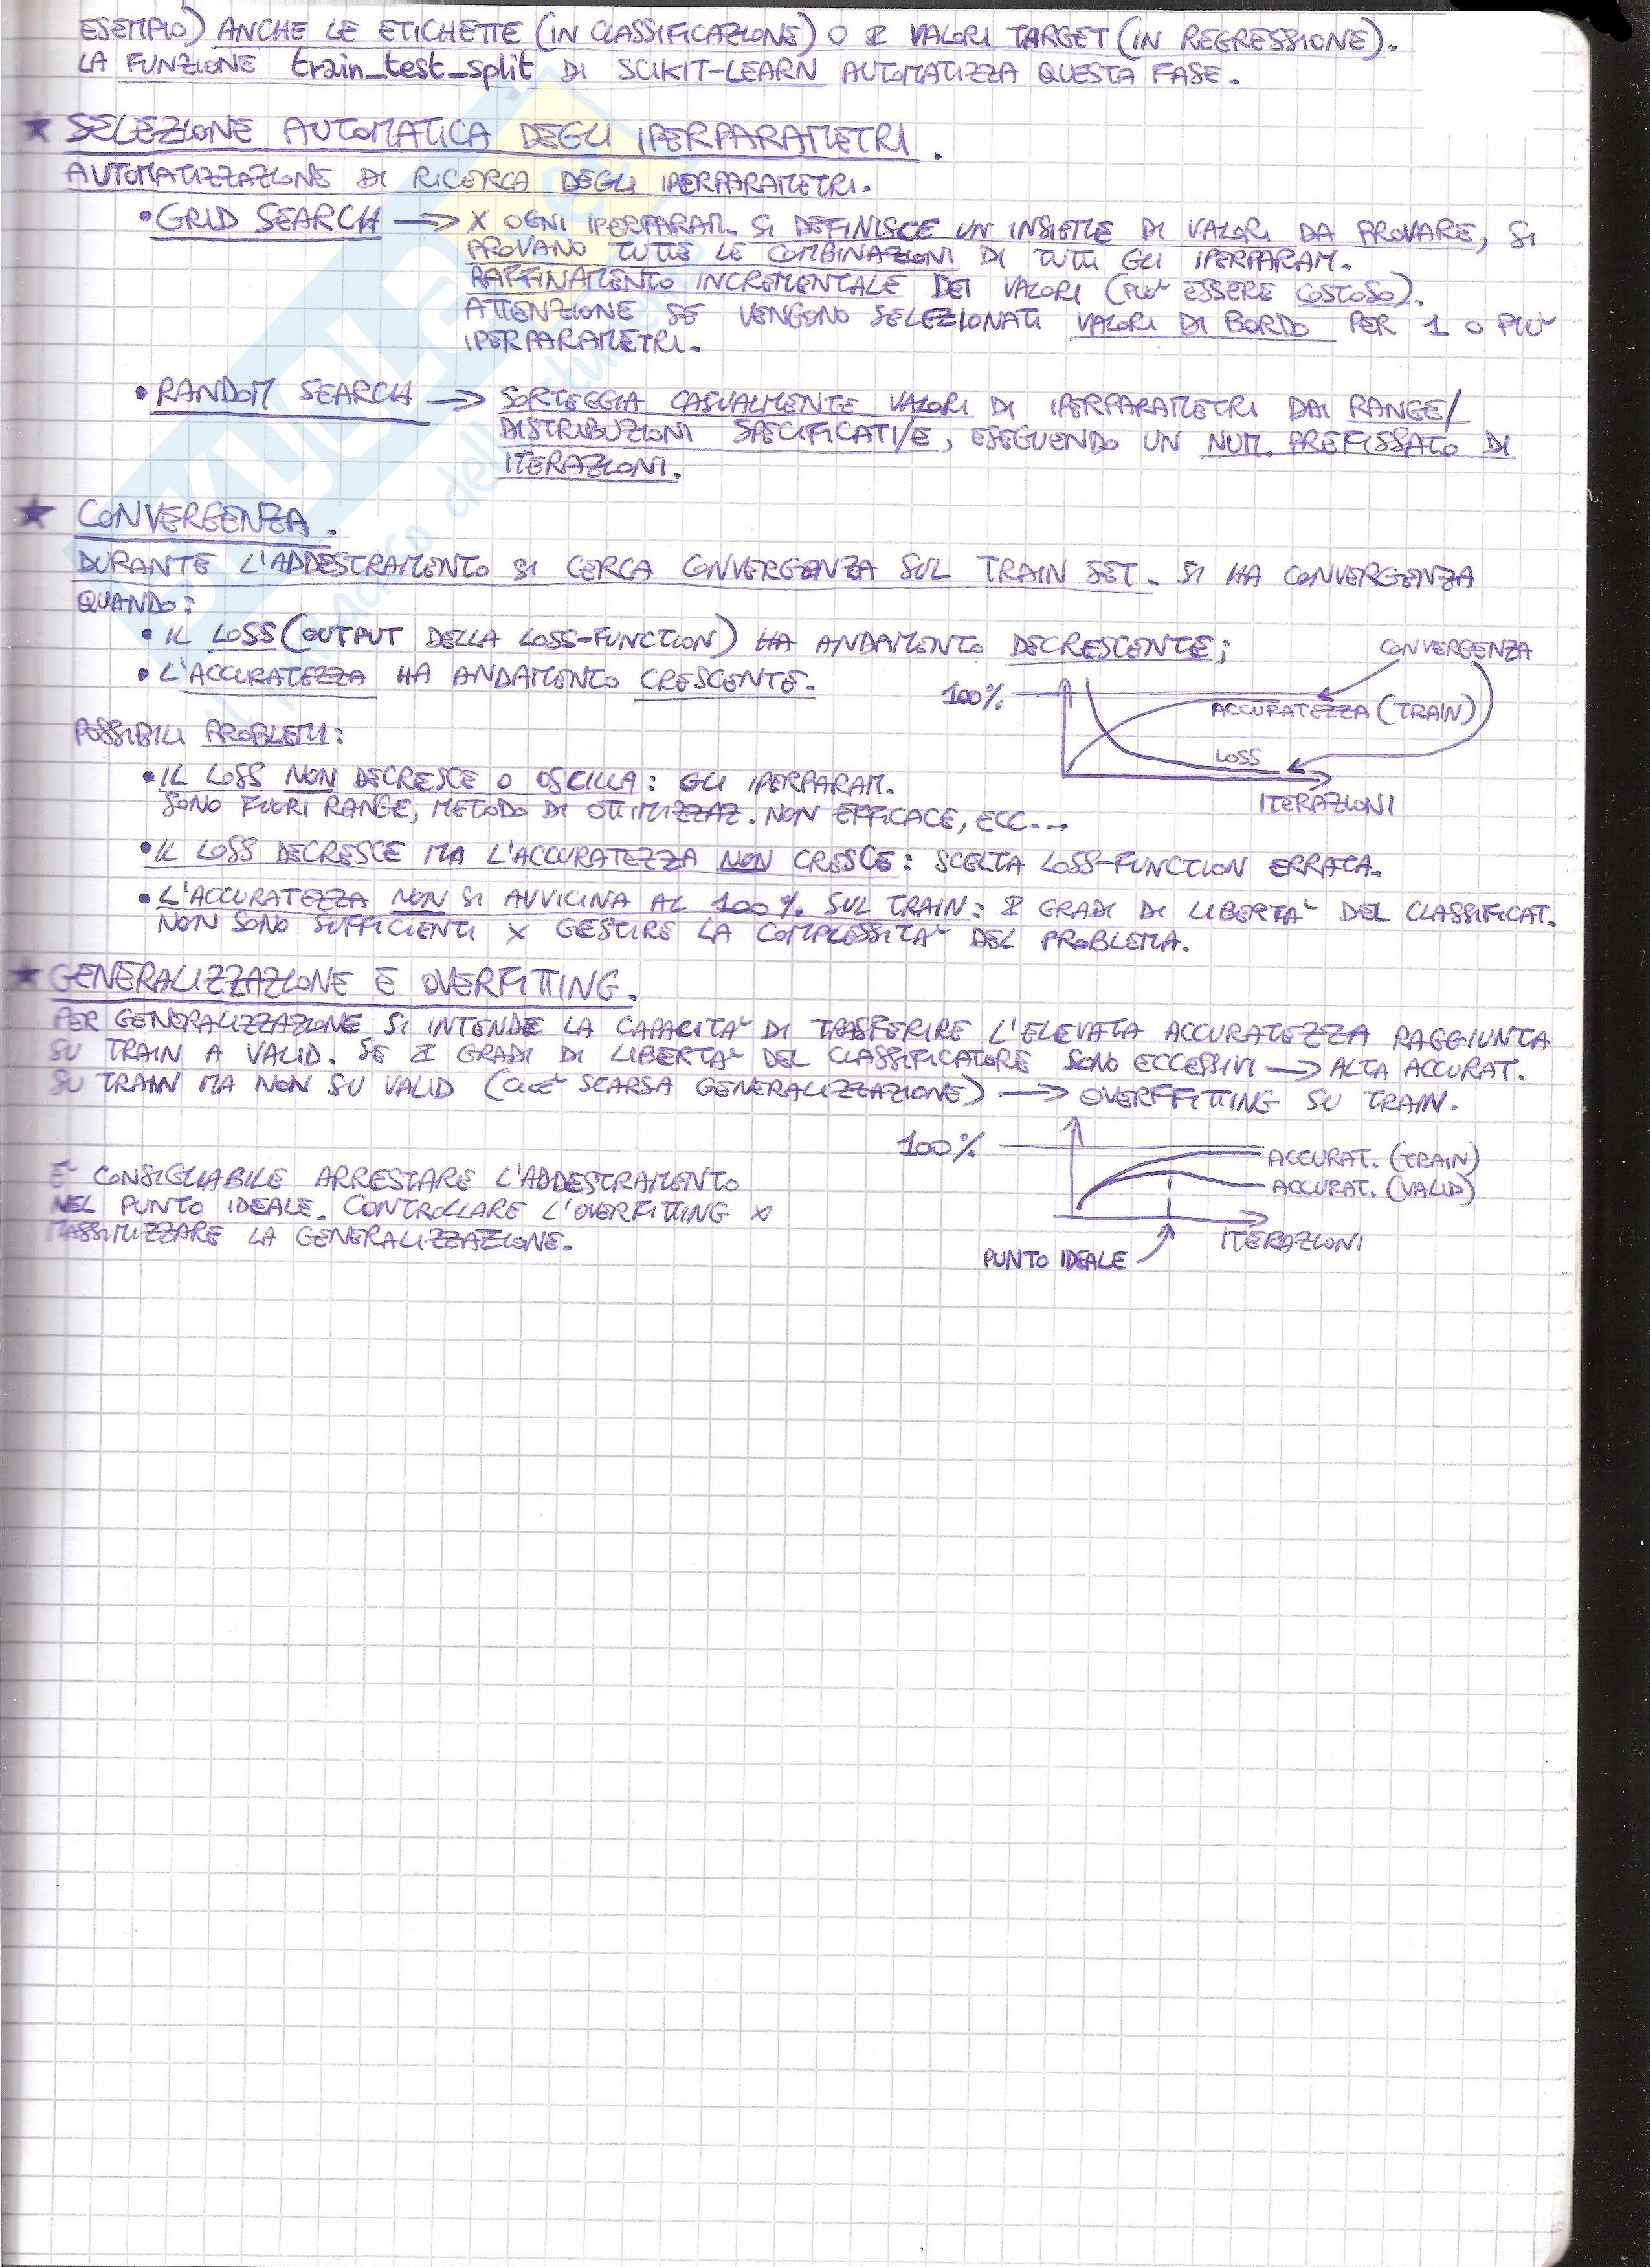 ESEMPIO) ANCHE LE ETICHETTE (IN CLASSIFICAZIONE) O I VALORI TARGET (IN REGRESSIONE).
LA FUNZIONE train_test_split DI SCIKIT-LEARN AUTOMATIZZA QUESTA FASE.
★ SELEZIONE AUTOMATICA DEGLI IPERPARAMETRI.
AUTOMATIZZAZIONE DI RICERCA DEGLI IPERPARAMETRI.
• GRID SEARCH → X OGNI IPERPARAM. SI DEFINISCE UN INSIEME DI VALORI DA PROVARE, SI
PROVANO TUTTE LE COMBINAZIONI DI TUTTI GLI IPERPARAM.
RAFFINAMENTO INCREMENTALE DEI VALORI (PUO' ESSERE COSTOSO).
ATTENZIONE SE VENGONO SELEZIONATI VALORI DI BORDO PER 1 O PIU'
IPERPARAMETRI.
• RANDOM SEARCH → SORTEGGIA CASUALMENTE VALORI DI IPERPARAMETRI DAI RANGE/
DISTRIBUZIONI SPECIFICATI/E, ESEGUENDO UN NUM. PREFISSATO DI
ITERAZIONI.
★ CONVERGENZA.
DURANTE L'ADDESTRAMENTO SI CERCA CONVERGENZA SUL TRAIN SET. SI HA CONVERGENZA
QUANDO:
• IL LOSS (OUTPUT DELLA LOSS-FUNCTION) HA ANDAMENTO DECRESCENTE;
• L'ACCURATEZZA HA ANDAMENTO CRESCENTE.
CONVERGENZA
100%
ACCURATEZZA (TRAIN)
LOSS
ITERAZIONI
POSSIBILI PROBLEMI:
• IL LOSS NON DECRESCE O OSCILLA: GLI IPERPARAM.
SONO FUORI RANGE, METODO DI OTTIMIZZAZ. NON EFFICACE, ECC...
• IL LOSS DECRESCE MA L'ACCURATEZZA NON CRESCE: SCELTA LOSS-FUNCTION ERRATA.
• L'ACCURATEZZA NON SI AVVICINA AL 100% SUL TRAIN: I GRADI DI LIBERTA' DEL CLASSIFICAT.
NON SONO SUFFICIENTI X GESTIRE LA COMPLESSITA' DEL PROBLEMA.
★ GENERALIZZAZIONE E OVERFITTING.
PER GENERALIZZAZIONE SI INTENDE LA CAPACITA' DI TRASFERIRE L'ELEVATA ACCURATEZZA RAGGIUNTA
SU TRAIN A VALID. SE I GRADI DI LIBERTA' DEL CLASSIFICATORE SONO ECCESSIVI → ALTA ACCURAT.
SU TRAIN MA NON SU VALID (CIOE' SCARSA GENERALIZZAZIONE) → OVERFFITTING SU TRAIN.
100%
ACCURAT. (TRAIN)
ACCURAT. (VALID)
ITERAZIONI
PUNTO IDEALE
E' CONSIGLIABILE ARRESTARE L'ADDESTRAMENTO
NEL PUNTO IDEALE. CONTROLLARE L'OVERFITTING X
MASSIMIZZARE LA GENERALIZZAZIONE.